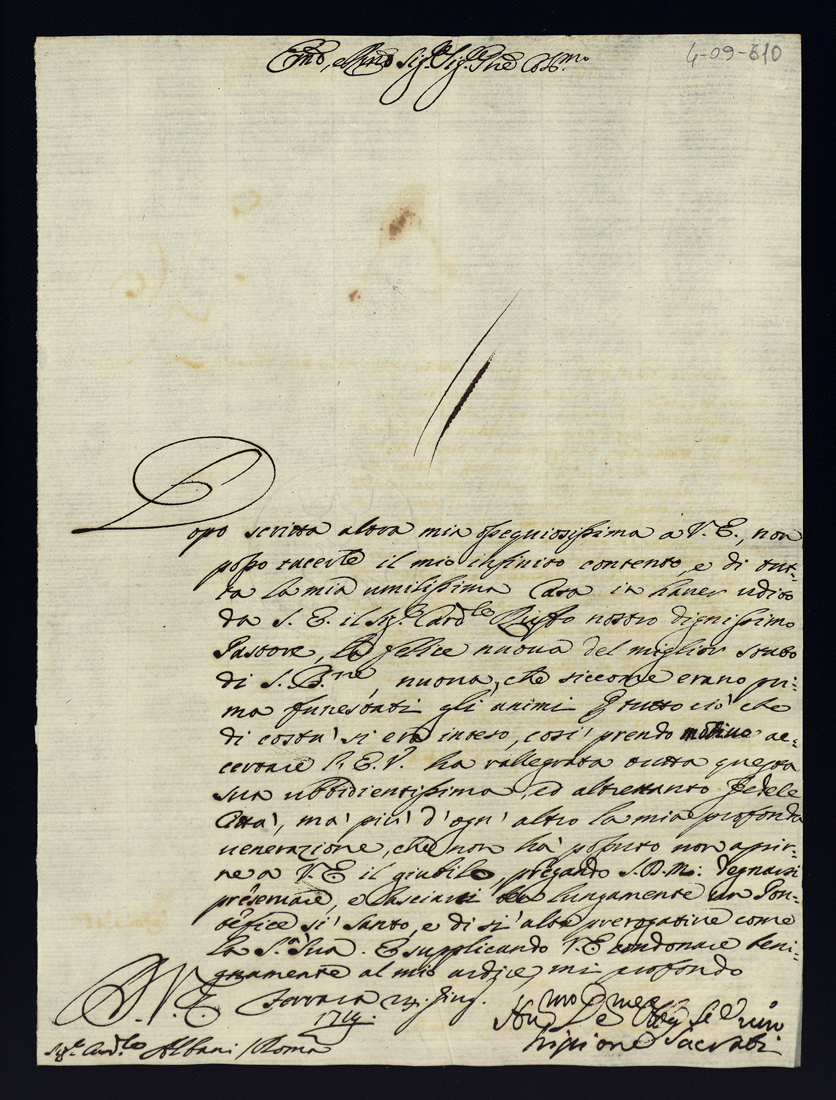 Em̄o, e Rm̄o Sig.r Sig.r Pn̄e Col.mo
4-09-610
Dopo scritta altra mia ossequiosissima a V. E., non
posso tacerle il mio infinito contento, e di tut=
ta la mia umilissima Casa in haver udito
da S. E. il Sig.r Card.le Ruffo nostro dignissimo
Pastore, la felice nuova del miglior stato
di S. B.ne, nuova, che siccome erano pri=
ma funestati gli animi p tutto ciò che
di costà si era inteso, così prendo motivo ac=
certare l'E. V. ha rallegrata tutta questa
sua ubbidientissima, ed altrettanto fedele
Città, mà più d'ogn' altro la mia profonda
venerazione, che non hà potuto non aprir=
ne a V. E. il giubilo, pregando S. D. M. degnarsi
preservare, e lasciarci lungamente un Pon=
tefice sì Santo, e di sì alte prerogative come
la S.tà Sua. E supplicando V. E. condonare beni=
gnamente al mio ardire, mi profondo
D. V. E. Ferrara Giug.
1719.
Sig.r Card.le Albani / Roma
Scipione Sacrati